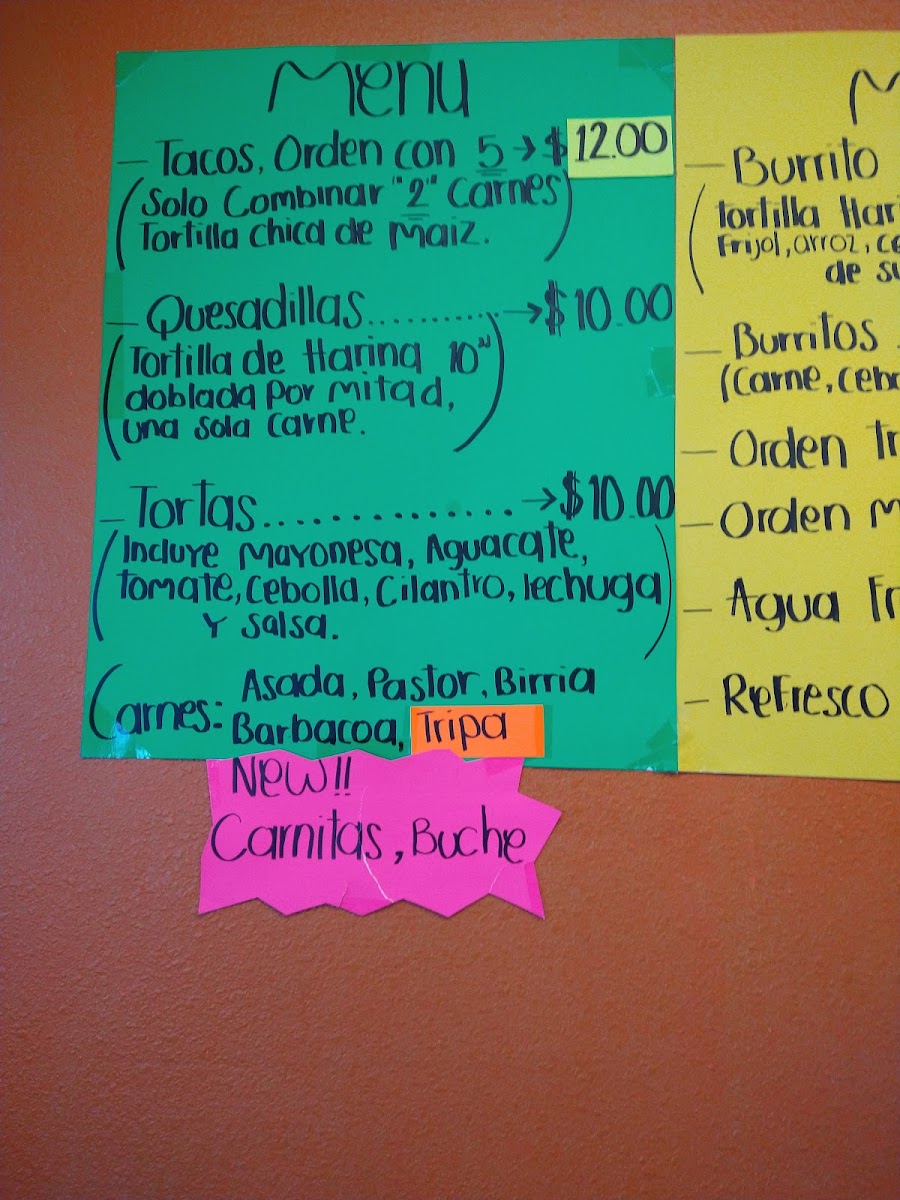 Menu
– Tacos, Orden con 5 → $ 12.00
(Solo Combinar "2" Carnes
Tortilla chica de Maiz.)
– Quesadillas.......... → $10.00
(Tortilla de Harina 10"
doblada por mitad,
una sola carne.)
– Tortas.............. → $10.00
(Incluye Mayonesa, Aguacate,
tomate, Cebolla, Cilantro, lechuga
Y salsa.)
Carnes: Asada, Pastor, Birria
Barbacoa, Tripa
New!!
Carnitas, Buche
– Burrito
(tortilla
Frijol, arroz,
de
– Burritos
(Carne,
– Orden
– Orden
– Agua
– Refresco